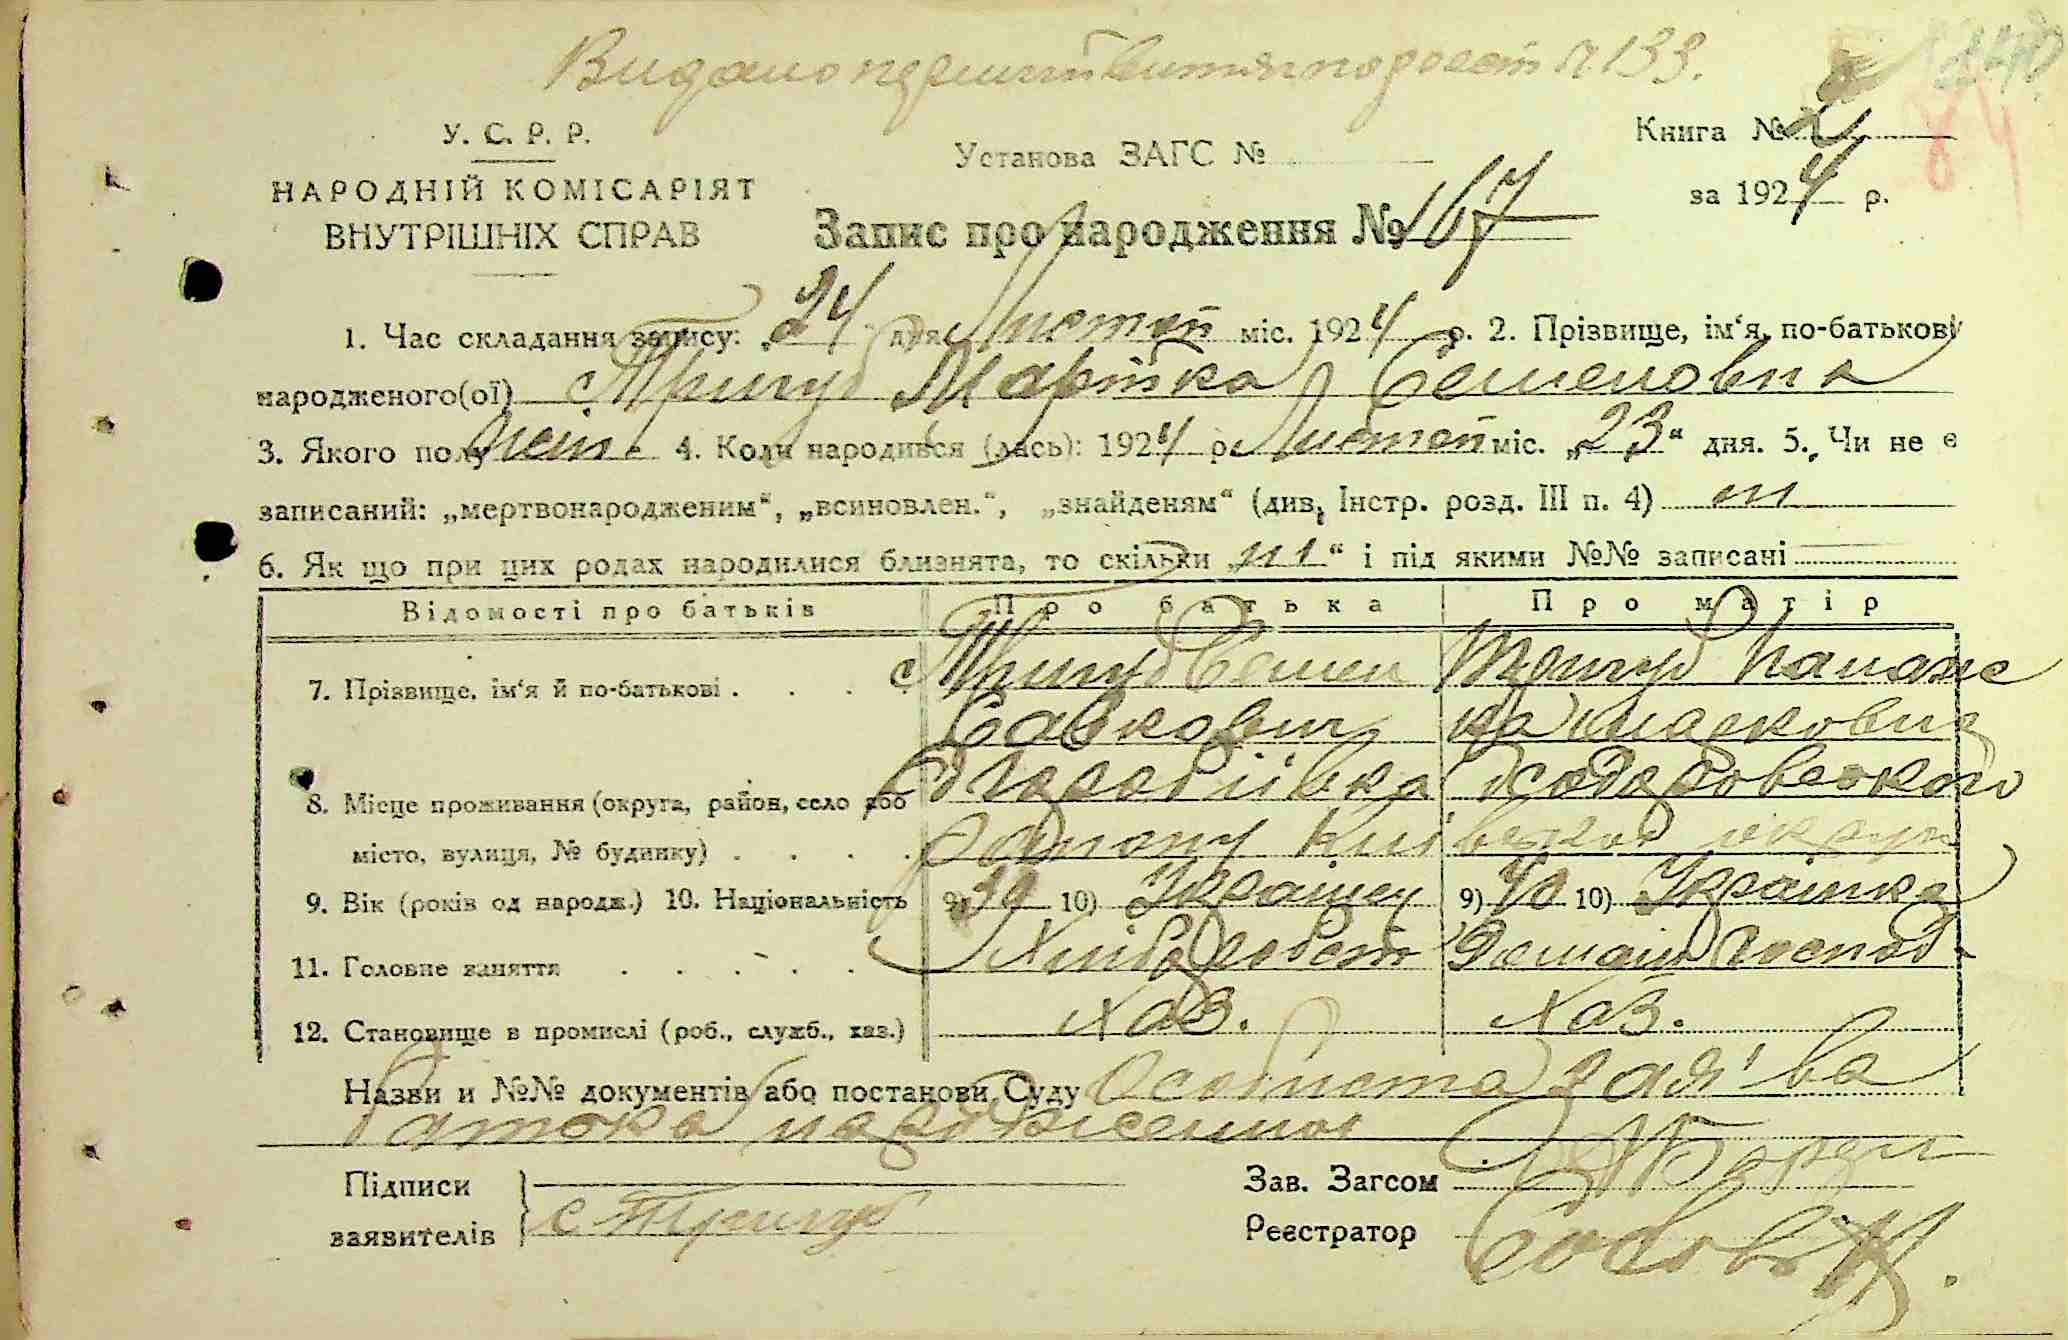 Видано перший витяг по реєст № 133.
240
84
У. С. Р. Р.
НАРОДНІЙ КОМІСАРІЯТ
ВНУТРІШНІХ СПРАВ
Установа ЗАГС №
Книга № 2
за 1924 р.
Запис про народження № 167
1. Час складання запису: „24 дня Листоп міс. 1924 р. 2. Прізвище, ім‘я, по-батькові
народженого(ої) Тригуб Марійка Семеновна
3. Якого полу жін. 4. Коли народився (лась): 1924 р. Листоп міс. „23“ дня. 5. Чи не є
записаний: „мертвонародженим“, „всиновлен.“, „знайденям“ (див. Інстр. розд. III п. 4) ні
6. Як що при цих родах народилися близнята, то скільки „ні“ і під якими №№ записані
Відомості про батьків Про батька Про матір
7. Прізвище, ім‘я й по-батькові . . . Тригуб Семен Тригуб Палаж
Савкович ка
8. Місце проживання (округа, район, село або
місто, вулиця, № будинку) . . . . району Київської округи
9. Вік (років од народж.) 10. Національність 9) 39 10) Українець 9) 40 10) Українка
11. Головне заняття . . . . . Хлібороб Домашн господ.
12. Становище в промислі (роб., служб., хаз.) хаз. хаз.
Назви и №№ документів або постанови Суду Особиста заява
батька народженної
Підписи
заявителів
С Тригуб
Зав. Загсом
Реєстратор